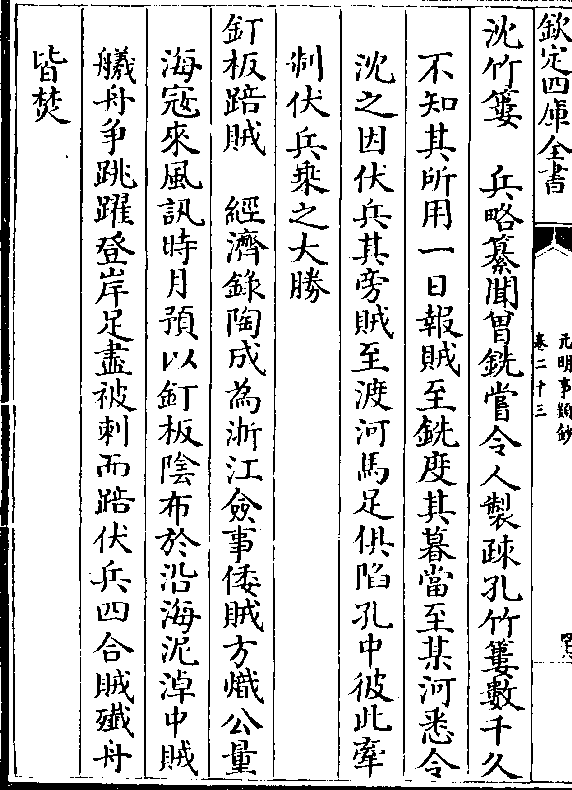 欽定四庫全書
元明事類鈔
卷二十三
沈竹簍　兵略纂聞曾銑嘗令人製疎孔竹簍數千久
不知其所用一日報賊至銑度其暮當至某河悉令
沈之因伏兵其旁賊至渡河馬足俱陷孔中彼此牽
制伏兵乘之大勝
釘板踣賊　經濟錄陶成為浙江僉事倭賊方熾公量
海寇來風訊時月預以釘板陰布於沿海泥淖中賊
艤舟爭跳躍登岸足盡被刺而踣伏兵四合賊殲舟
皆焚